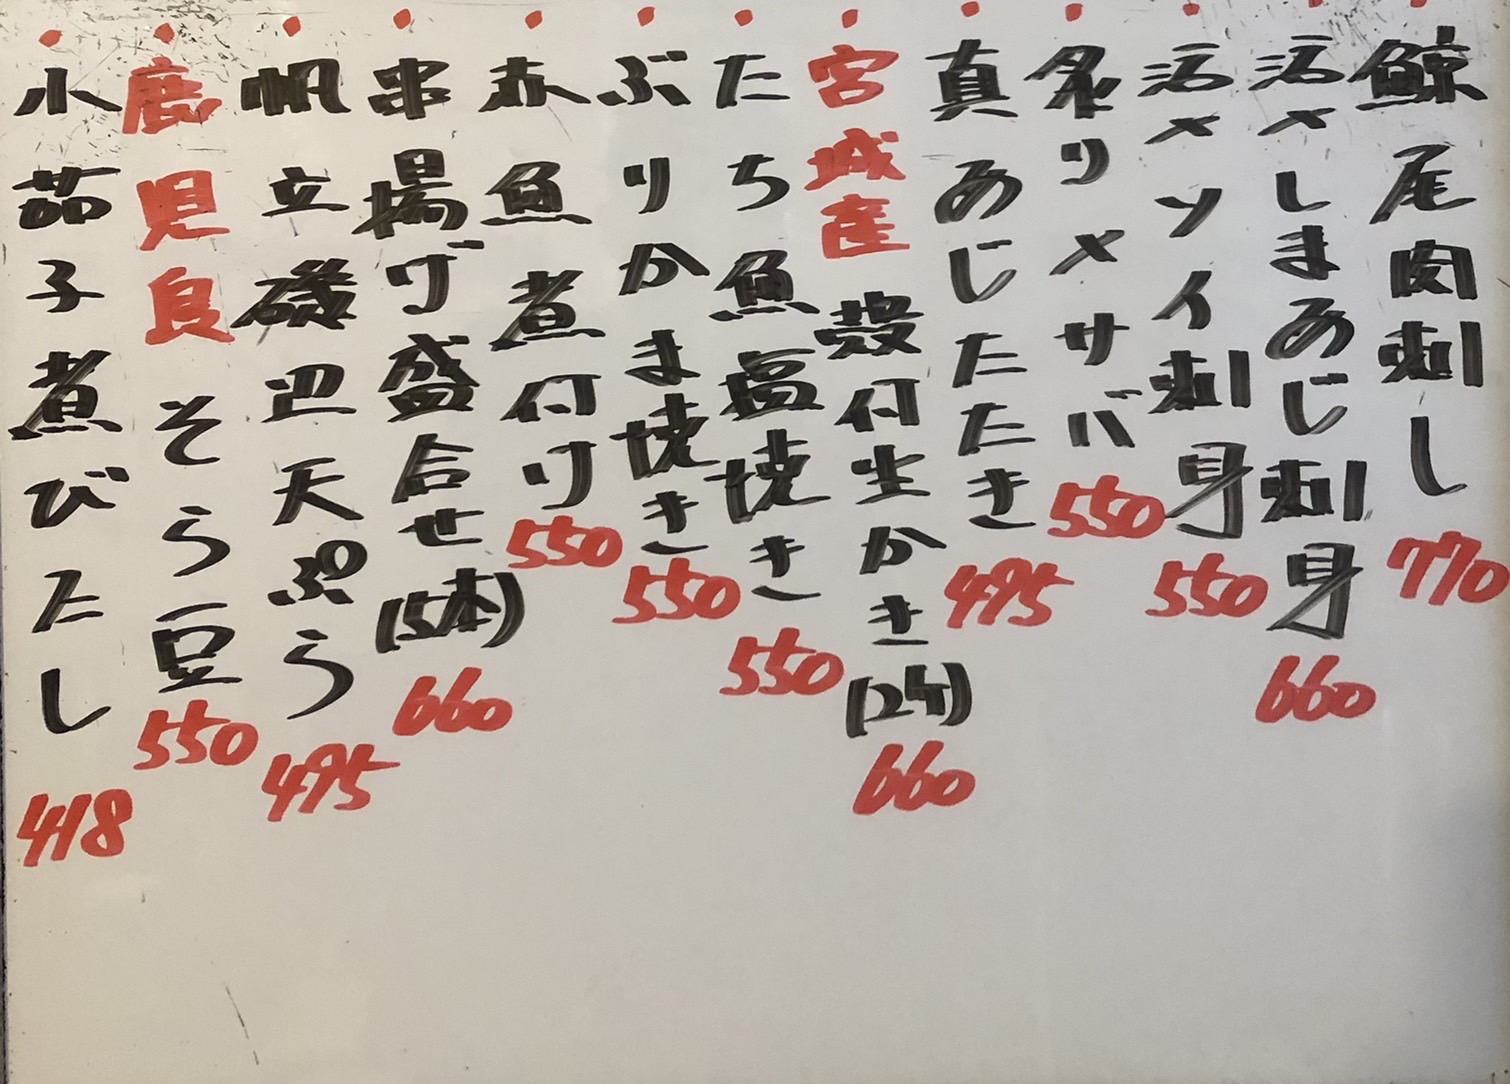 鯨尾肉刺し 770
活〆しまあじ刺身 660
活〆ソイ刺身 550
炙りメサバ 550
真あじたたき 495
宮城産 殻付生かき(2ケ) 660
たち魚塩焼き 550
ぶりかま焼き 550
赤魚煮付け 550
串揚げ盛合せ(5本) 660
帆立磯辺天ぷら 495
鹿児島 そら豆 550
小茄子煮びたし 418